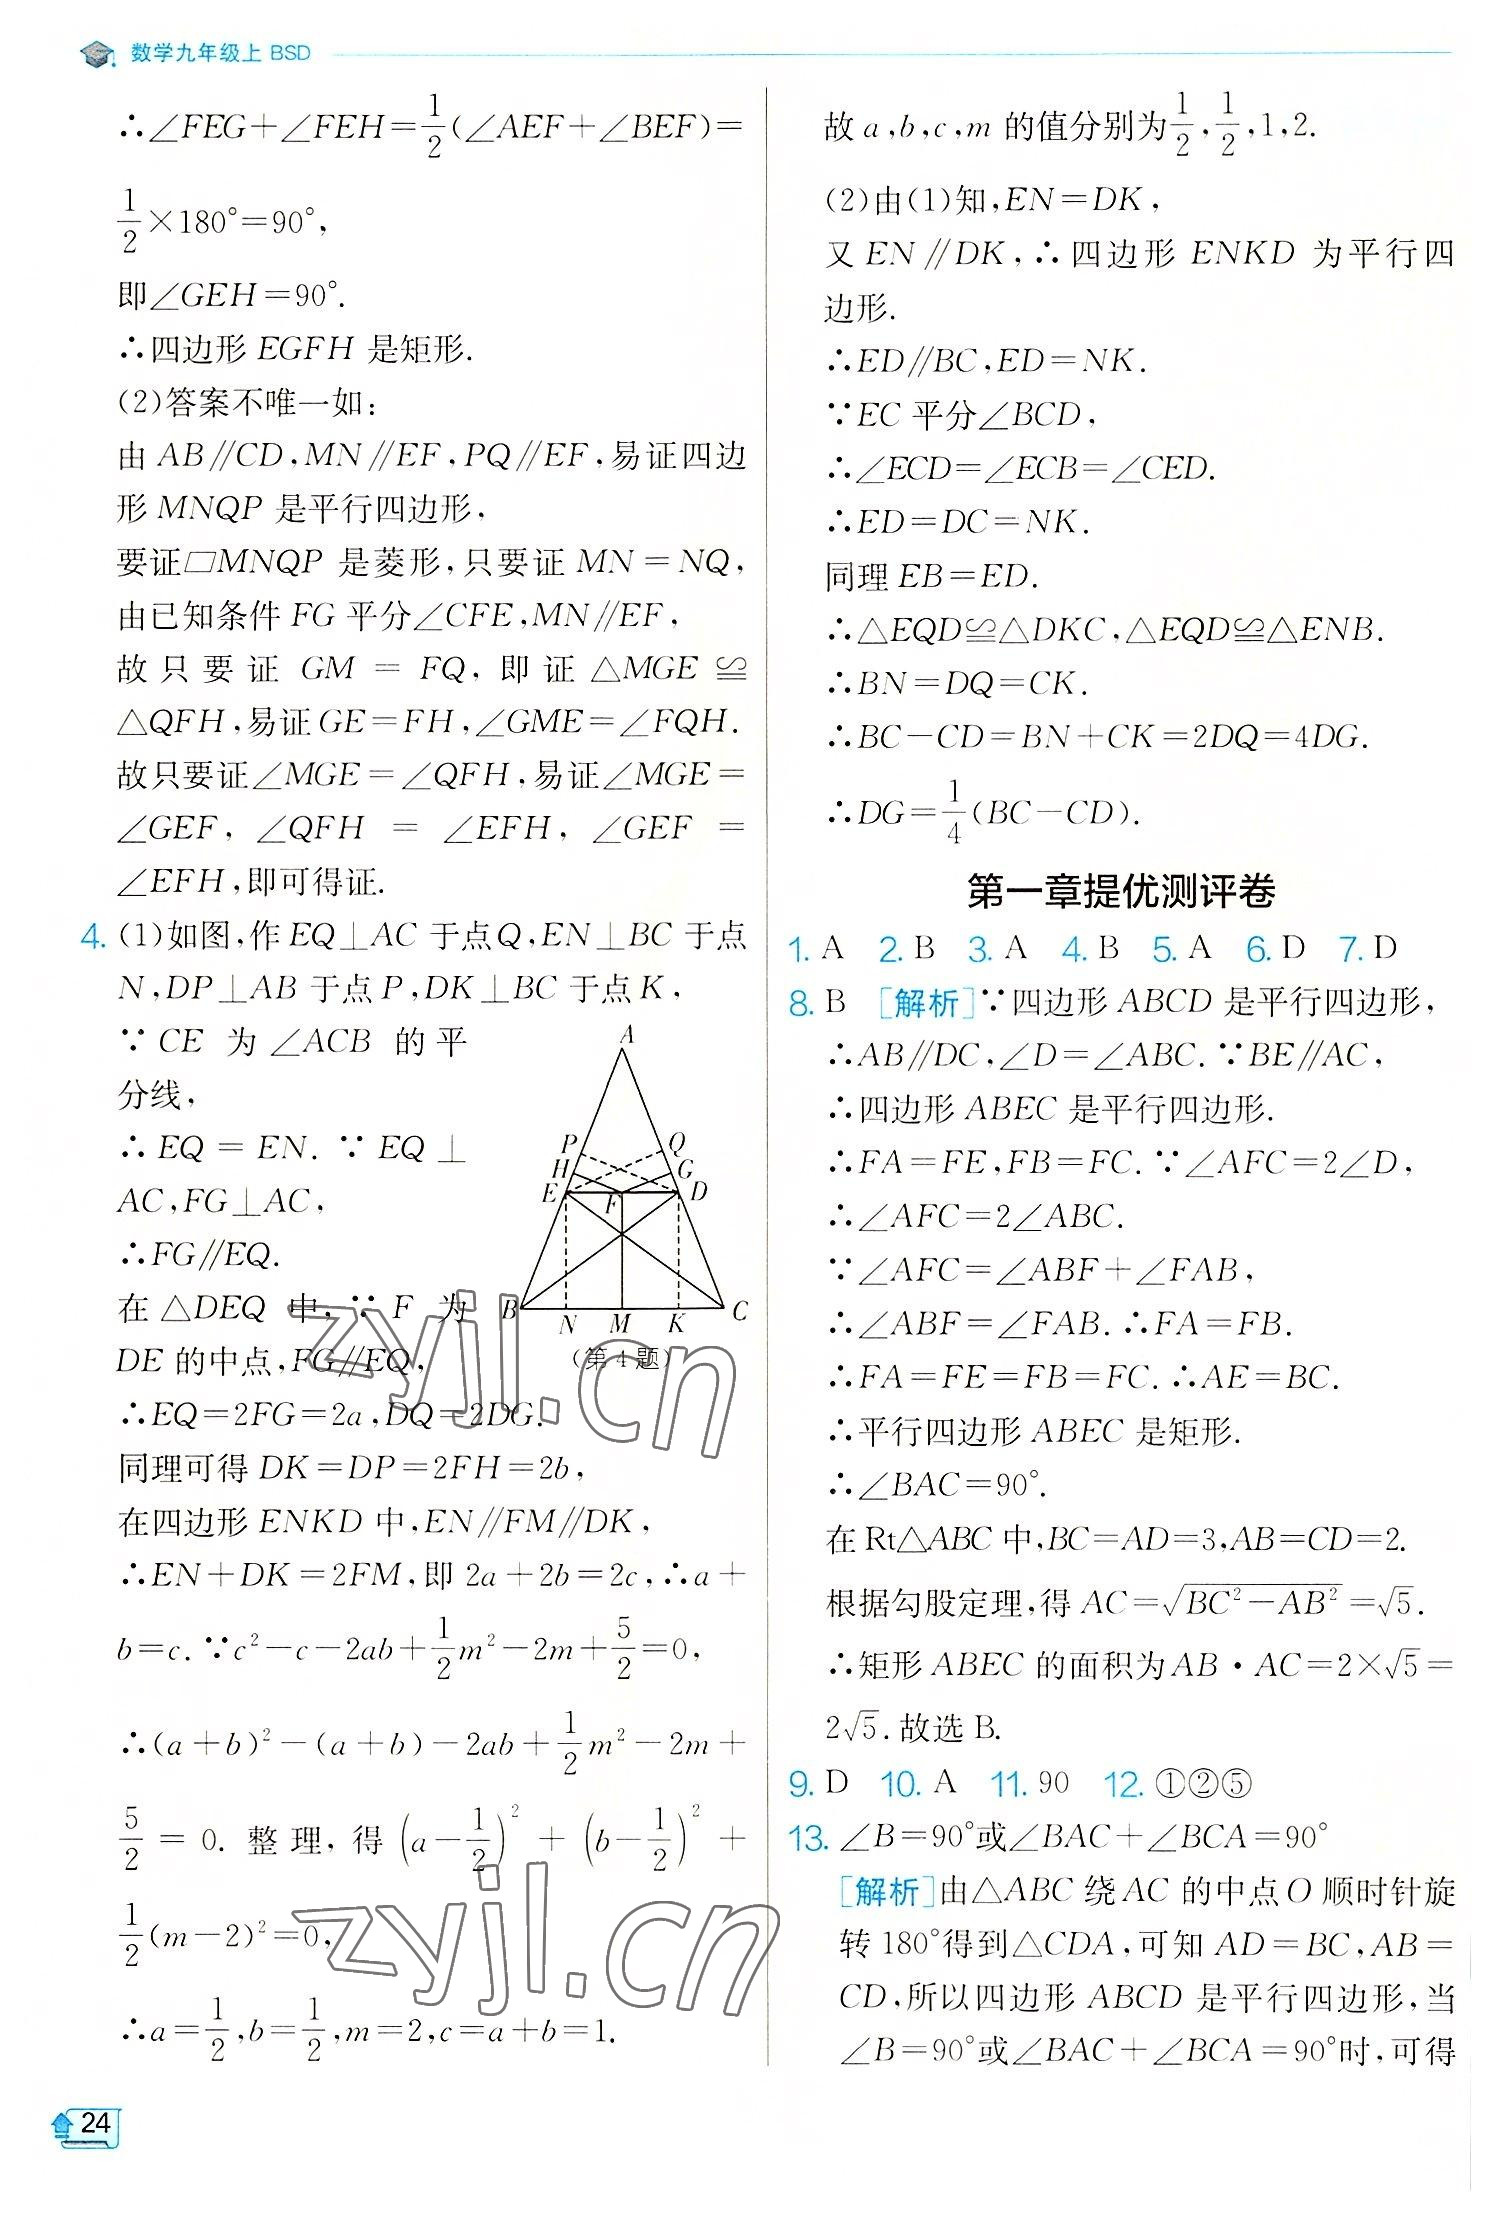 数学九年级上 BSD
∴∠FEG+∠FEH=1/2(∠AEF+∠BEF)=
1/2×180°=90°,
即∠GEH=90°.
∴四边形 EGFH 是矩形.
(2)答案不唯一如:
由 AB∥CD,MN∥EF,PQ∥EF,易证四边
形 MNQP 是平行四边形,
要证▱MNQP 是菱形,只要证 MN=NQ,
由已知条件 FG 平分∠CFE,MN∥EF,
故只要证 GM=FQ,即证 △MGE≌
△QFH,易证GE=FH,∠GME=∠FQH.
故只要证∠MGE=∠QFH,易证∠MGE=
∠GEF,∠QFH=∠EFH,∠GEF=
∠EFH,即可得证.
4. (1)如图,作EQ⊥AC 于点Q,EN⊥BC于点
N,DP⊥AB于点P,DK⊥BC于点K,
∵CE 为∠ACB 的平
分线,
∴EQ=EN.∵EQ⊥
AC,FG⊥AC,
∴FG∥EQ.
在△DEQ 中,∵F 为
DE的中点,FG∥EQ,
∴EQ=2FG=2a,DQ=2DG.
A
P
Q
H
G
E
F
D
B
N
M
K
C
(第4题)
同理可得 DK=DP=2FH=2b,
在四边形 ENKD 中,EN∥FM∥DK,
∴EN+DK=2FM,即 2a+2b=2c,∴a+
b=c.∵c²-c-2ab+1/2m²-2m+5/2=0,
∴(a+b)²-(a+b)-2ab+1/2m²-2m+
5/2=0.整理,得(a-1/2)²+(b-1/2)²+
1/2(m-2)²=0,
∴a=1/2,b=1/2,m=2,c=a+b=1.
24
故 a,b,c,m 的值分别为1/2,1/2,1,2.
(2)由(1)知,EN=DK,
又 EN∥DK,∴四边形 ENKD 为平行四
边形.
∴ED∥BC,ED=NK.
∵EC 平分∠BCD,
∴∠ECD=∠ECB=∠CED.
∴ED=DC=NK.
同理 EB=ED.
∴△EQD≌△DKC,△EQD≌△ENB.
∴BN=DQ=CK.
∴BC-CD=BN+CK=2DQ=4DG.
∴DG=1/4(BC-CD).
第一章提优测评卷
1. A 2. B 3. A 4. B 5. A 6. D 7. D
8. B [解析]∵四边形 ABCD 是平行四边形,
∴AB∥DC,∠D=∠ABC.∵BE∥AC,
∴四边形 ABEC 是平行四边形.
∴FA=FE,FB=FC.∵∠AFC=2∠D,
∴∠AFC=2∠ABC.
∵∠AFC=∠ABF+∠FAB,
∴∠ABF=∠FAB.∴FA=FB.
∴FA=FE=FB=FC.∴AE=BC.
∴平行四边形 ABEC 是矩形.
∴∠BAC=90°.
在 Rt△ABC 中,BC=AD=3,AB=CD=2.
根据勾股定理,得 AC=√(BC²-AB²)=√5.
∴矩形 ABEC 的面积为AB·AC=2×√5=
2√5.故选 B.
9. D 10. A 11. 90 12. ①②⑤
13. ∠B=90°或∠BAC+∠BCA=90°
[解析]由△ABC 绕 AC 的中点 O 顺时针旋
转 180°得到△CDA,可知 AD=BC,AB=
CD,所以四边形 ABCD 是平行四边形,当
∠B=90°或∠BAC+∠BCA=90°时,可得
zyjl.cn
zyjl.cn